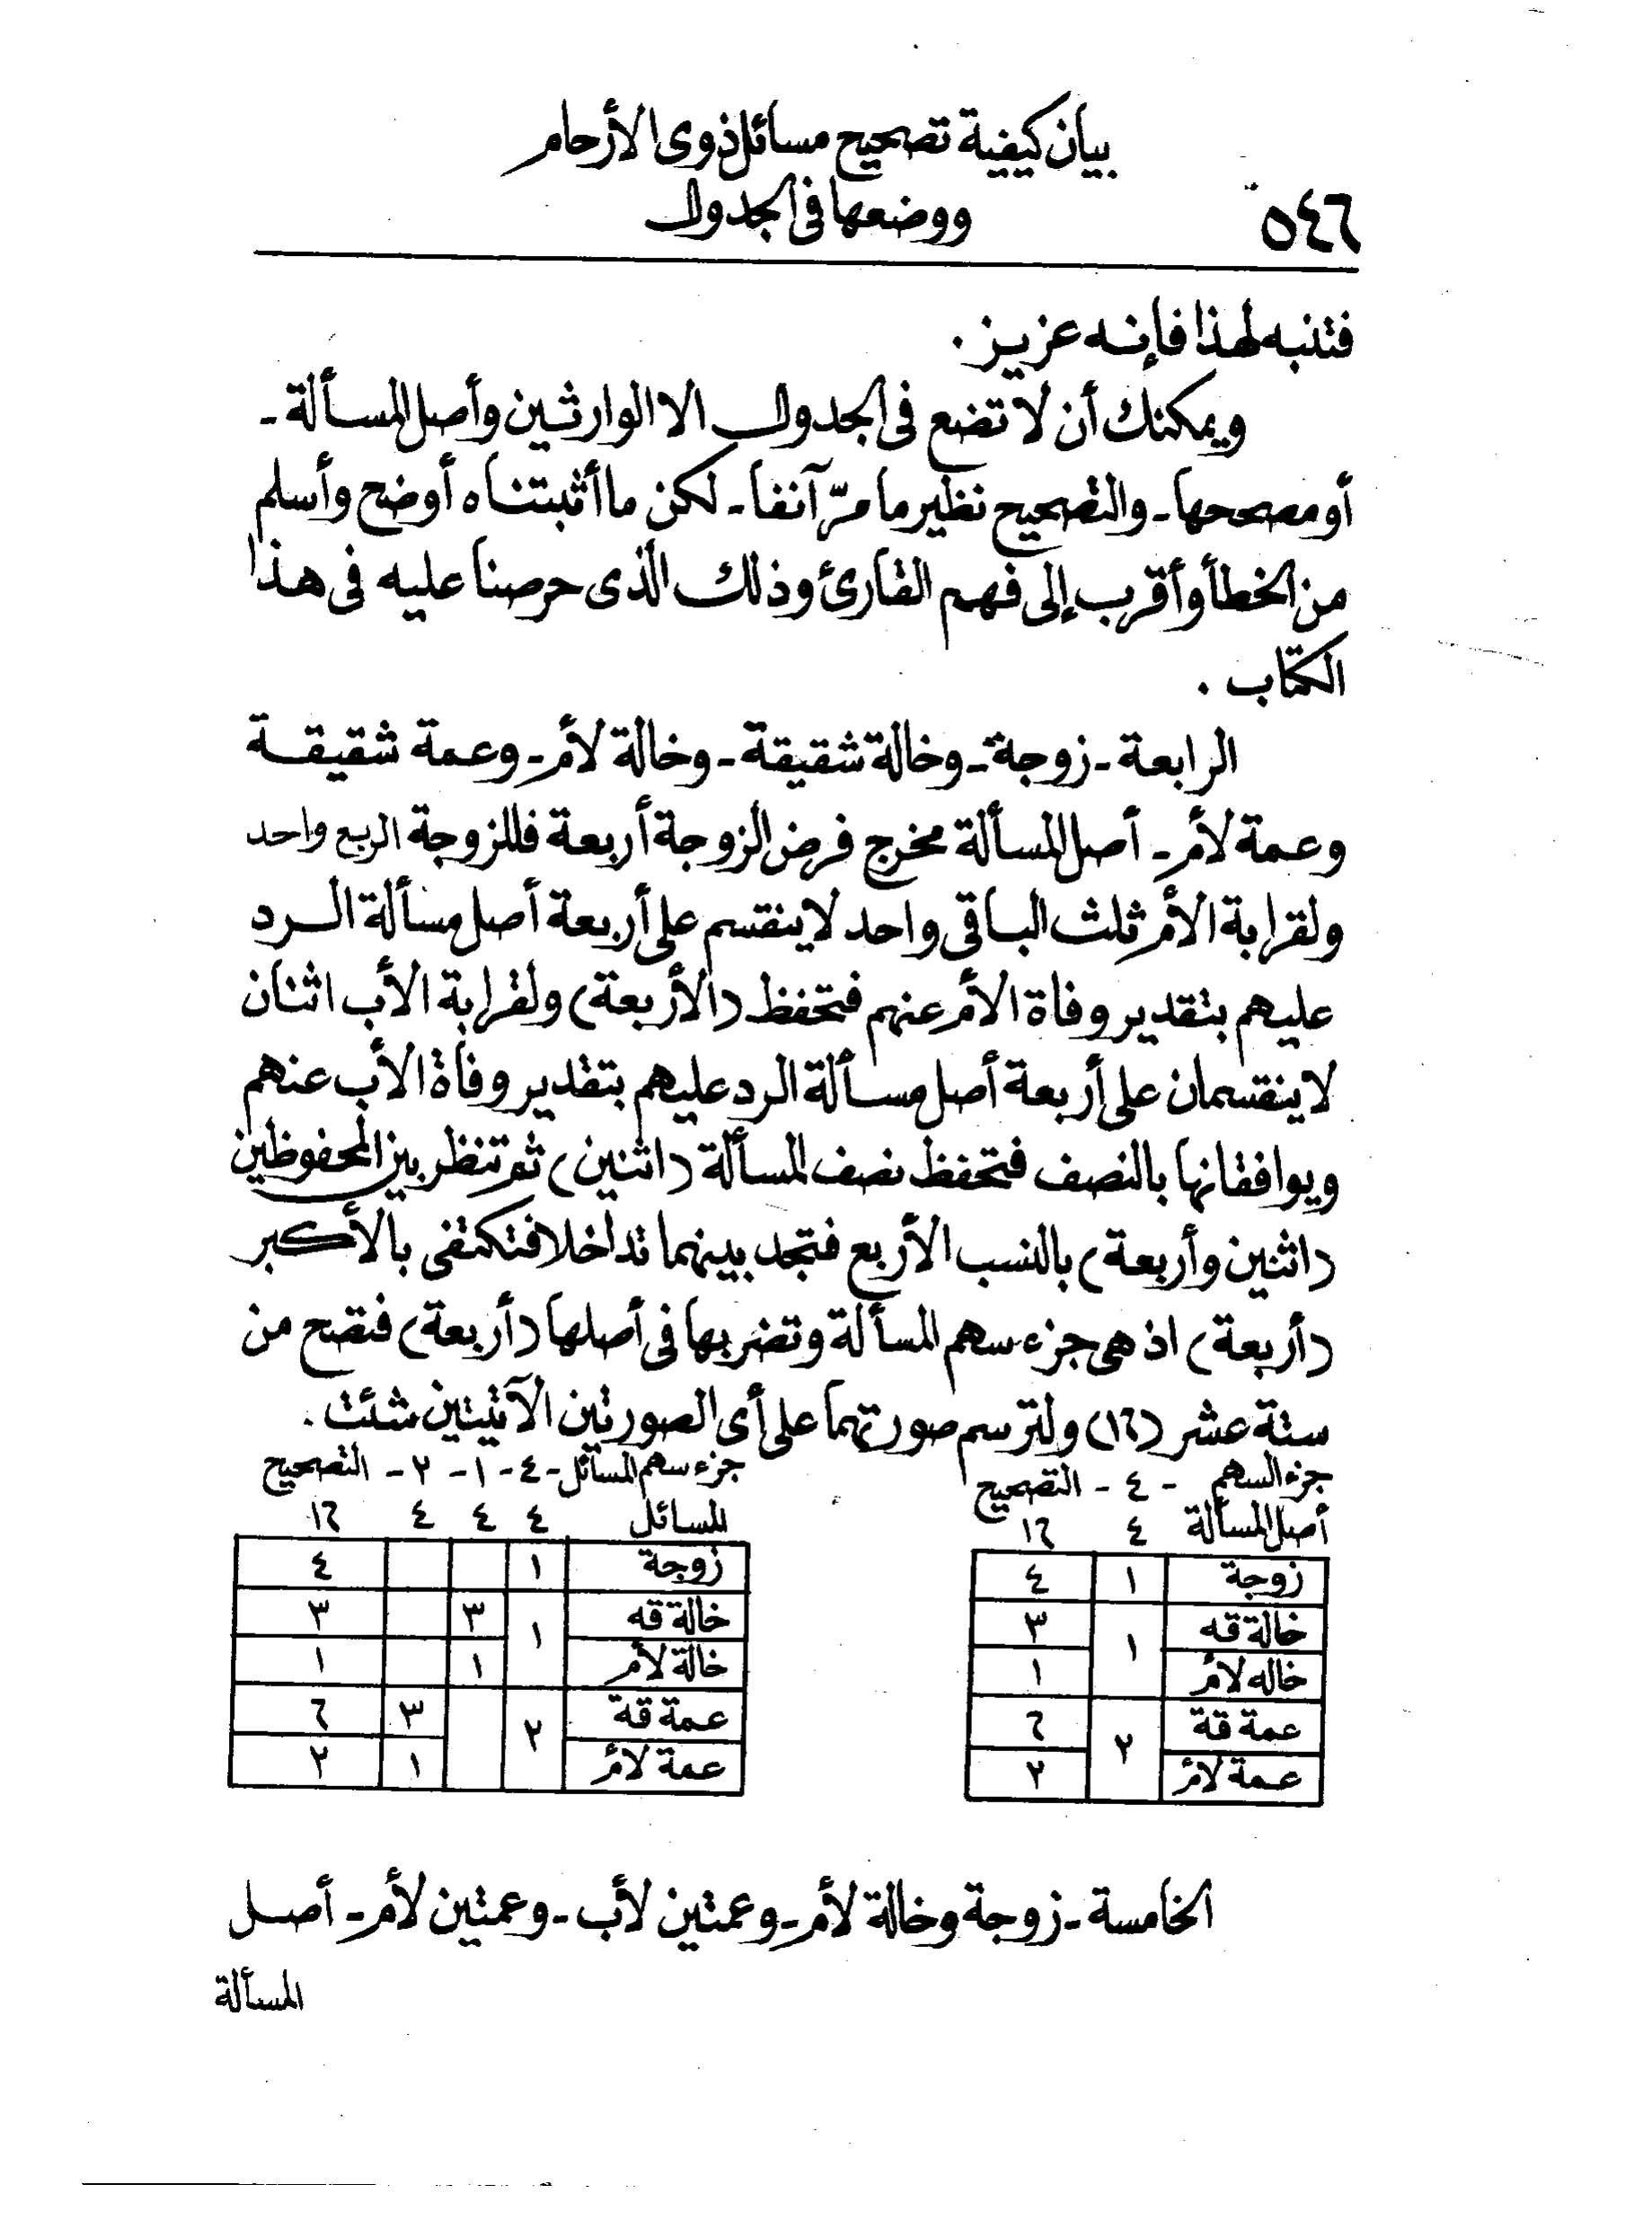 بيان كيفية تصحيح مسائل ذوى الأرحام
ووضعها فى الجدول
٥٤٦
فتنبه لهذا فإنه عزيز .
ويمكنك أن لا تضع فى الجدول الا الوارثين وأصل المسألة -
أو مصححها - والتصحيح نظير ما مرّ آنفا - لكن ما أثبتناه أوضح وأسلم
من الخطأ وأقرب إلى فهم القارئ وذلك الذى حرصنا عليه فى هذا
الكتاب .
الرابعة - زوجة - وخالة شقيقة - وخالة لأم - وعمة شقيقة
وعمة لأم - أصل المسألة مخرج فرض الزوجة أربعة فللزوجة الربع واحد
ولقرابة الأم ثلث الباقى واحد لا ينقسم على أربعة أصل مسألة الرد
عليهم بتقدير وفاة الأم عنهم فتحفظ (الأربعة) ولقرابة الأب اثنان
لا ينقسمان على أربعة أصل مسألة الرد عليهم بتقدير وفاة الأب عنهم
ويوافقانها بالنصف فتحفظ نصف المسألة (اثنين) ثم تنظر بين المحفوظين
(اثنين وأربعة) بالنسب الأربع فتجد بينهما تداخلا فتكتفى بالأكبر
(أربعة) اذ هى جزء سهم المسألة وتضربها فى أصلها (أربعة) فتصح من
ستة عشر (١٦) ولترسم صورتهما على أى الصورتين الآتيتين شئت .
جزء السهم - ٤ - التصحيح
أصل المسألة ٤ ١٦
زوجة ١ ٤
خالة قه ١ ٣
خاله لأم ١
عمة قة ٢ ٦
عمة لأم ٢
جزء سهم المسائل - ٤ - ١ - ٢ - التصحيح
المسائل ٤ ٤ ٤ ١٦
زوجة ١ ٤
خالة قه ١ ٣ ٣
خالة لأم ١ ١
عمة قة ٢ ٣ ٦
عمة لأم ١ ٢
الخامسة - زوجة وخالة لأم - وعمتين لأب - وعمتين لأم - أصل
المسألة